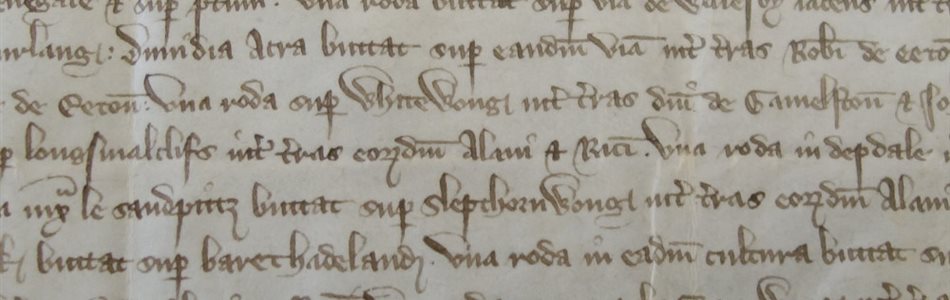 sup ptium . Una roda buttat sup via de
urlang : Dimidia Acra buttat sup eandm via int t'ras Robi de eeto
de Eeton . Una roda sup Whitewong int t'ras dni de Gamelston &
longsmalclifs int t'ras eorzdm Alani & Rici . Una roda in depdale
iux le sandpittz buttat sup Slepthornwong int t'ras eorzdm Alani
buttat sup barethadeland . Una roda in eadm cultura buttat su